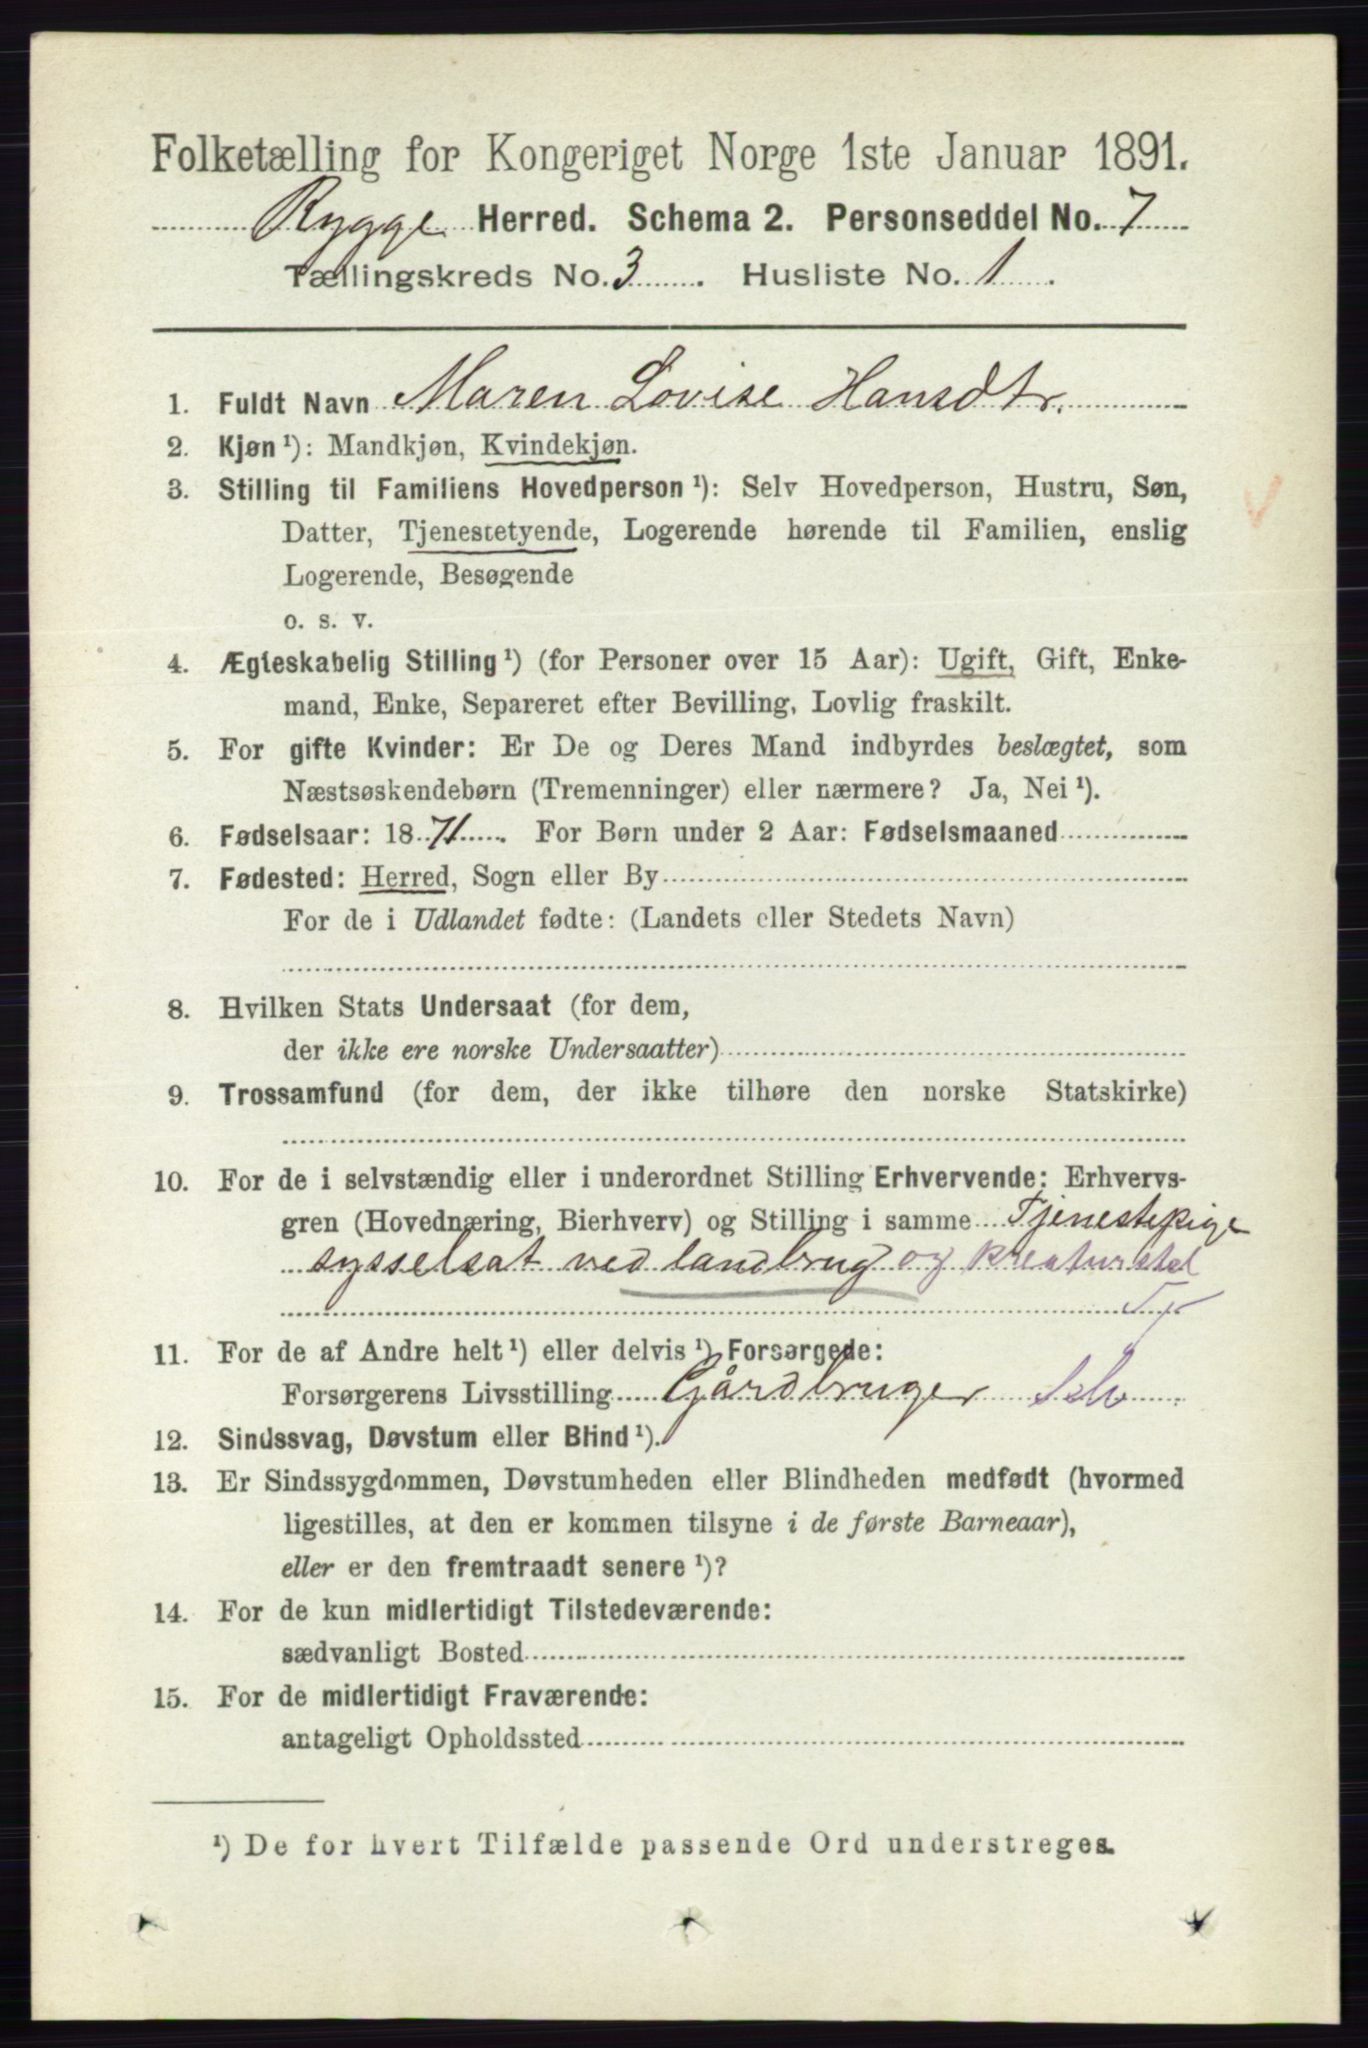 Folketælling for Kongeriget Norge 1ste Januar 1891.
Rygge Herred. Schema 2. Personseddel No. 7
Tællingskreds No. 3. Husliste No. 1.
1. Fuldt Navn Maren Lovise Hansdtr.
2. Kjøn ¹): Mandkjøn, Kvindekjøn.
3. Stilling til Familiens Hovedperson ¹): Selv Hovedperson, Hustru, Søn,
Datter, Tjenestetyende, Logerende hørende til Familien, enslig
Logerende, Besøgende
o. s. v.
4. Ægteskabelig Stilling ¹) (for Personer over 15 Aar): Ugift, Gift, Enke-
mand, Enke, Separeret efter Bevilling, Lovlig fraskilt.
5. For gifte Kvinder: Er De og Deres Mand indbyrdes beslægtet, som
Næstsøskendebørn (Tremenninger) eller nærmere? Ja, Nei ¹).
6. Fødselsaar: 1871. For Børn under 2 Aar: Fødselsmaaned
7. Fødested: Herred, Sogn eller By
For de i Udlandet fødte: (Landets eller Stedets Navn)
8. Hvilken Stats Undersaat (for dem,
der ikke ere norske Undersaatter)
9. Trossamfund (for dem, der ikke tilhøre den norske Statskirke)
10. For de i selvstændig eller i underordnet Stilling Erhvervende: Erhvervs-
gren (Hovednæring, Bierhverv) og Stilling i samme Tjenestepige
sysselsat ved landbrug og kreaturstel
11. For de af Andre helt ¹) eller delvis ¹) Forsørgede:
Forsørgerens Livsstilling Gårdbruger Selv
12. Sindssvag, Døvstum eller Blind ¹).
13. Er Sindssygdommen, Døvstumheden eller Blindheden medfødt (hvormed
ligestilles, at den er kommen tilsyne i de første Barneaar),
eller er den fremtraadt senere ¹)?
14. For de kun midlertidigt Tilstedeværende:
sædvanligt Bosted
15. For de midlertidigt Fraværende:
antageligt Opholdssted
¹) De for hvert Tilfælde passende Ord understreges.